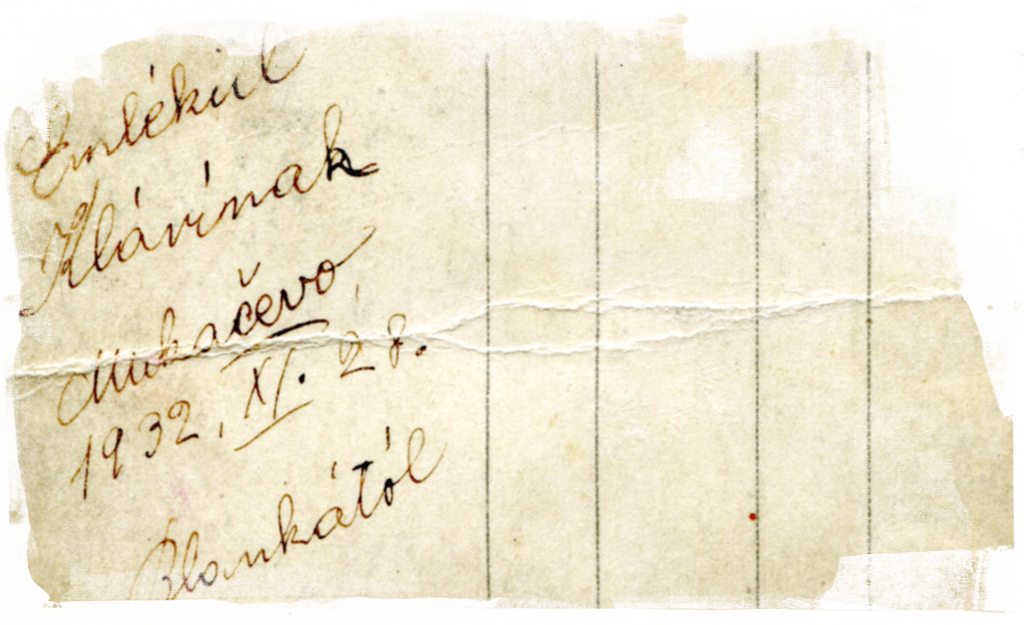 Emlékül
Klárinak
Mukačevo,
1932, XI. 28.
Blankától